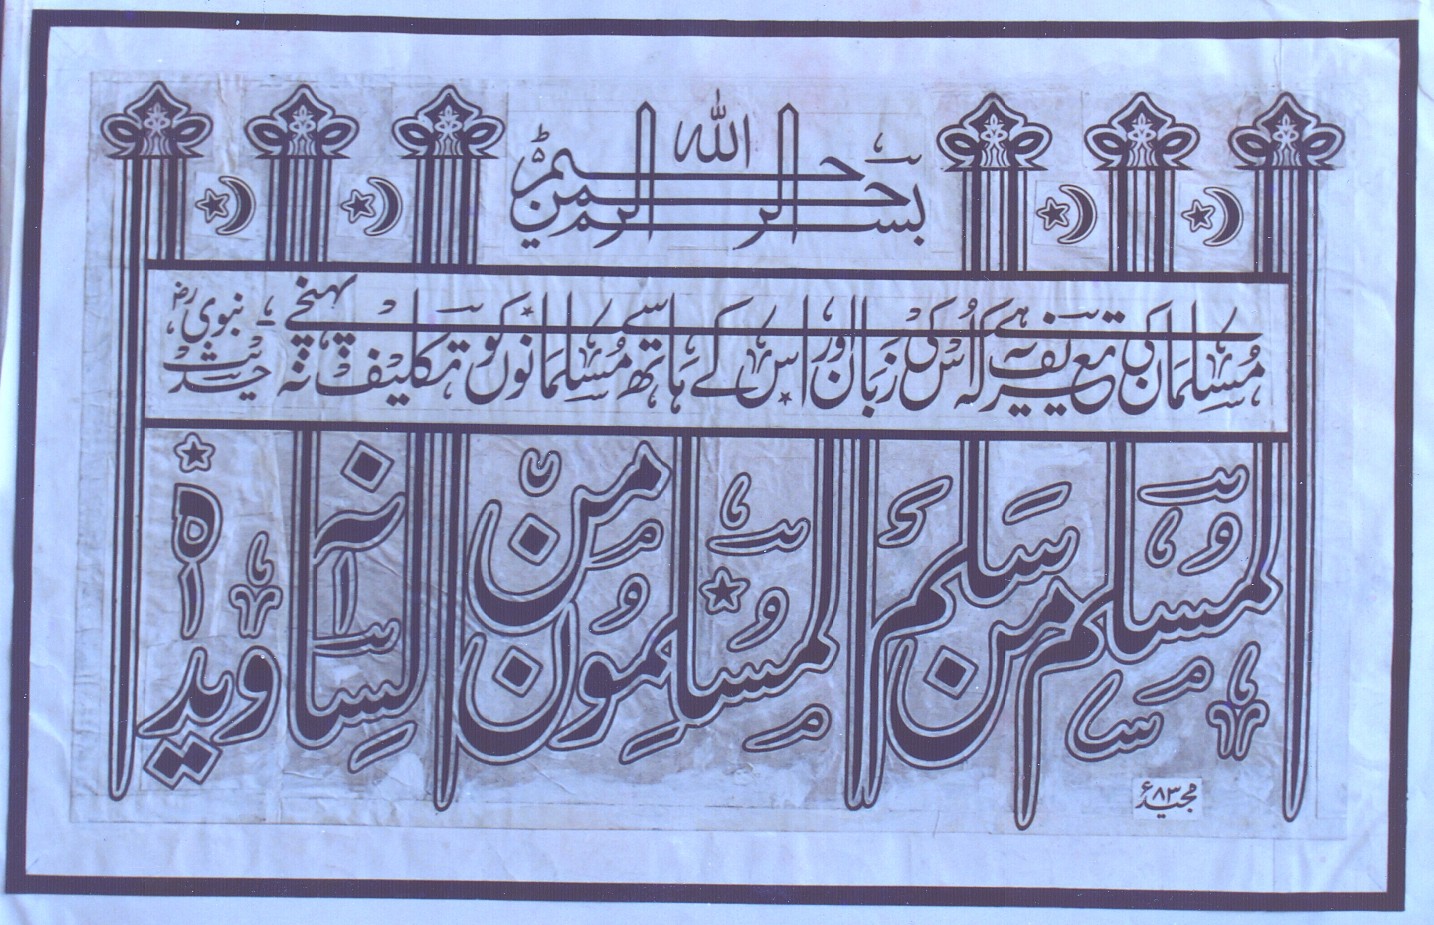 بسم الله الرحمن الرحيم
مُسلمان کی تعریف یہ ہے کہ اُس کی زبان اور اس کے ہاتھ سے مُسلمانوں کو تکلیف نہ پہنچے۔ حدیث نبوی
المُسلم من سَلِمَ المُسلِمُونَ مِنْ لِسَانِهِ وَيَدِهِ
مجید ۸۳ء